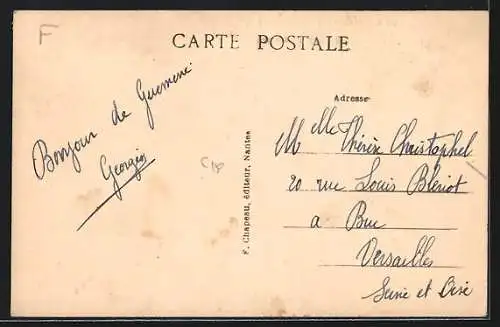 F
CARTE POSTALE
Bonjour de Guemené
Georges
C18
F. Chapeau, éditeur, Nantes
Adresse
M Mlle Thérèse Christophel
20 rue Louis Blériot
a Buc
Versailles
Seine et Oise